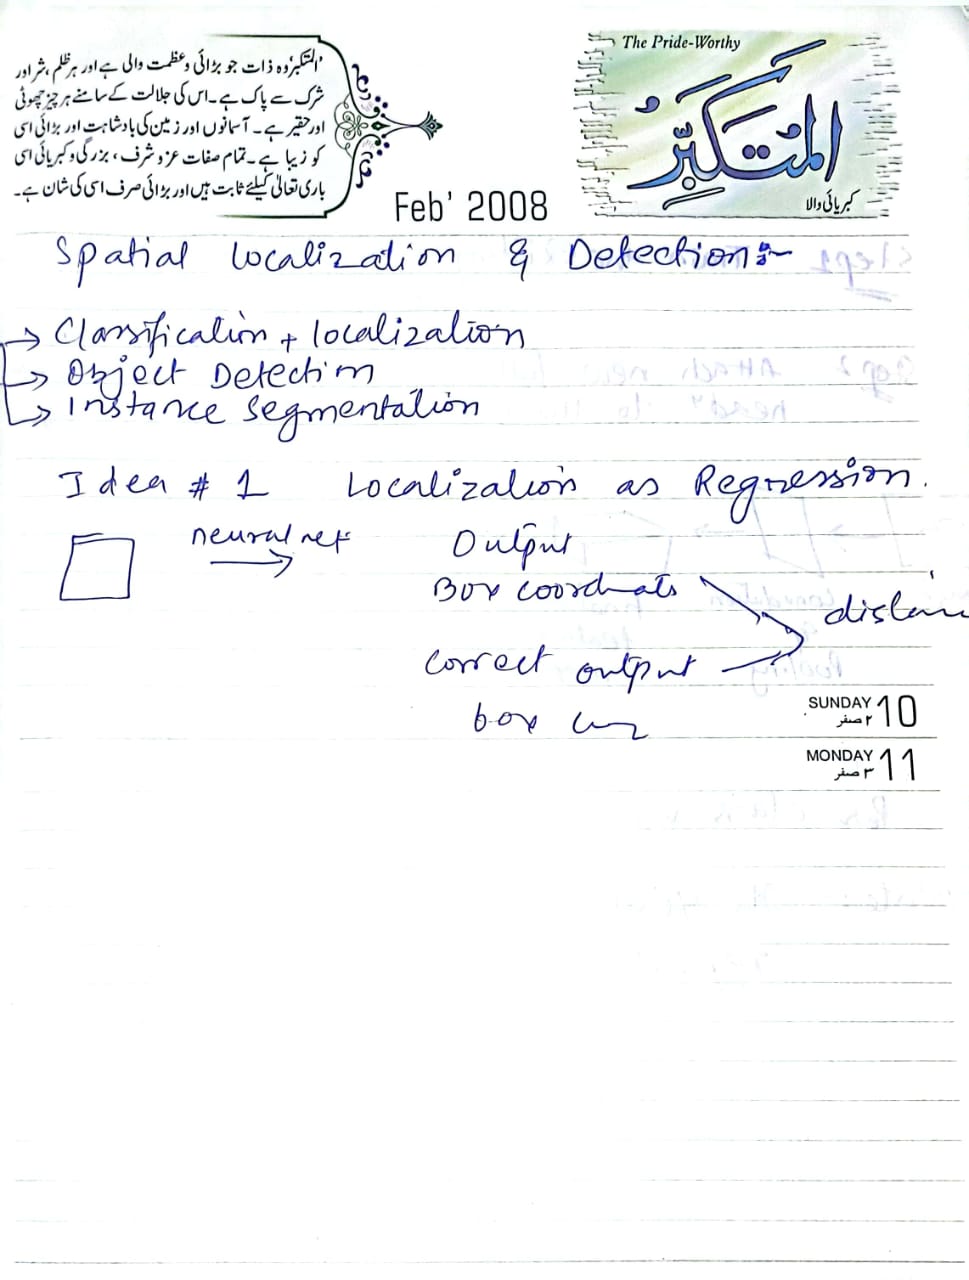 المتکبّر وہ ذات جو بڑائی و عظمت والی ہے اور ہر ظلم، شر اور
شرک سے پاک ہے۔ اس کی جلالت کے سامنے ہر چیز چھوٹی
اور حقیر ہے۔ آسمانوں اور زمین کی بادشاہت اور بڑائی اسی
کو زیبا ہے۔ تمام صفات عز و شرف، بزرگی و کبریائی اسی
باری تعالیٰ کیلئے ثابت ہیں اور بڑائی صرف اسی کی شان ہے۔
The Pride-Worthy
المُتَكَبِّرُ
کبریائی والا
Feb' 2008
Spatial Localization & Detection:-
Classification + localization
Object Detection
Instance Segmentation
Idea # 1 Localization as Regression.
neural net
Output
Box coordinats
correct output
box
SUNDAY 10
۲ صفر
MONDAY 11
۳ صفر